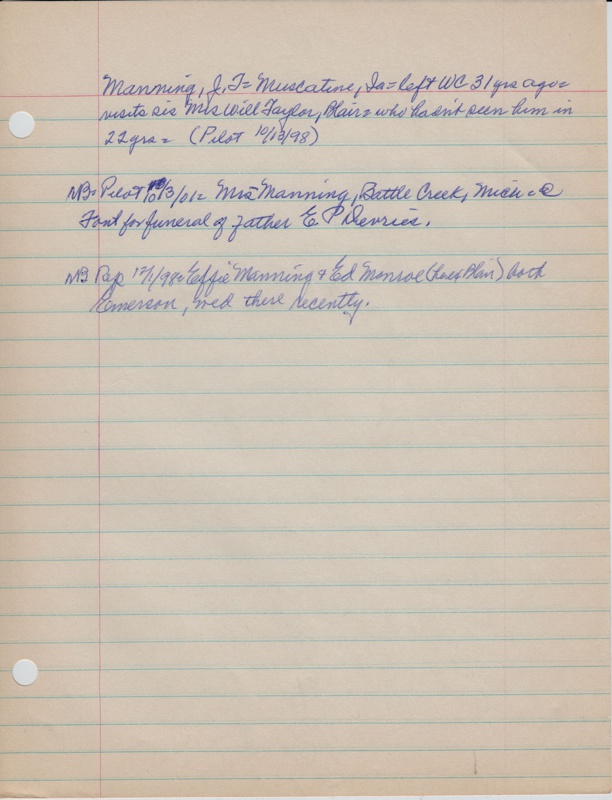 Manning, J. T= Muscatine, Ia= left WC 31 yrs ago=
visits sis Mrs Will Taylor, Blair= who hadn't seen him in
22 yrs= (Pilot 10/13/98)
NB= Pilot 10/3/01= Mrs Manning, Battle Creek, Mich= @
Font for funeral of father E P Devries.
NB Rep 12/1/98= Effie Manning & Ed Monroe (Blair) both
Emerson, wed there recently.